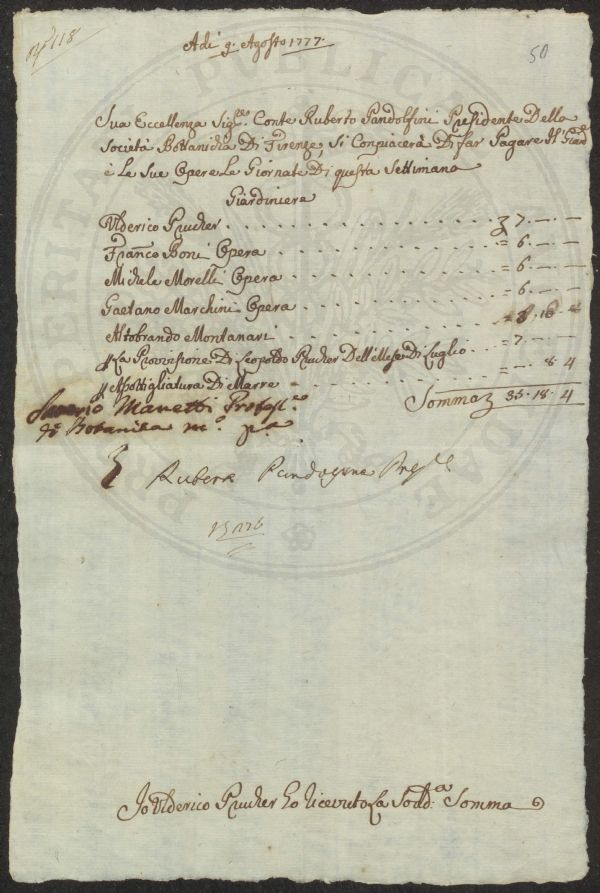 N.° 118
50
Adì 9. Agosto 1777.
Sua Eccellenza Sig.re Conte Ruberto Pandolfini Presidente Della
Società Bottanicha Di Firenze, Si Conpiacerà Di far Pagare Il Giard.e
e Le Sue Opere Le Giornate Di questa Settimana
Giardiniere
Ulderico Prucher . . . . . . . . . . . . 7. — . —
Franco Boni Opera . . . . . . . . . . . = 6. — . —
Michele Morelli Opera . . . . . . . . . = 6. — . —
Gaetano Marchini Opera . . . . . . . . = 6. — . —
Aldobrando Montanari . . . . . . . . . = 8. 10 —
La Provinsione Di Leopoldo Prucher Dell Mese Di Luglio . . = 7. — . —
Apottigliatura Di Marre = . . . . . . . — . 8. 4
Somma 35. 18. 4
Saverio Manetti Profess.e
di Botanica m.o p.a
Presid.e
Io Ulderico Prucher Ho Riceuto La Sodd.a Somma